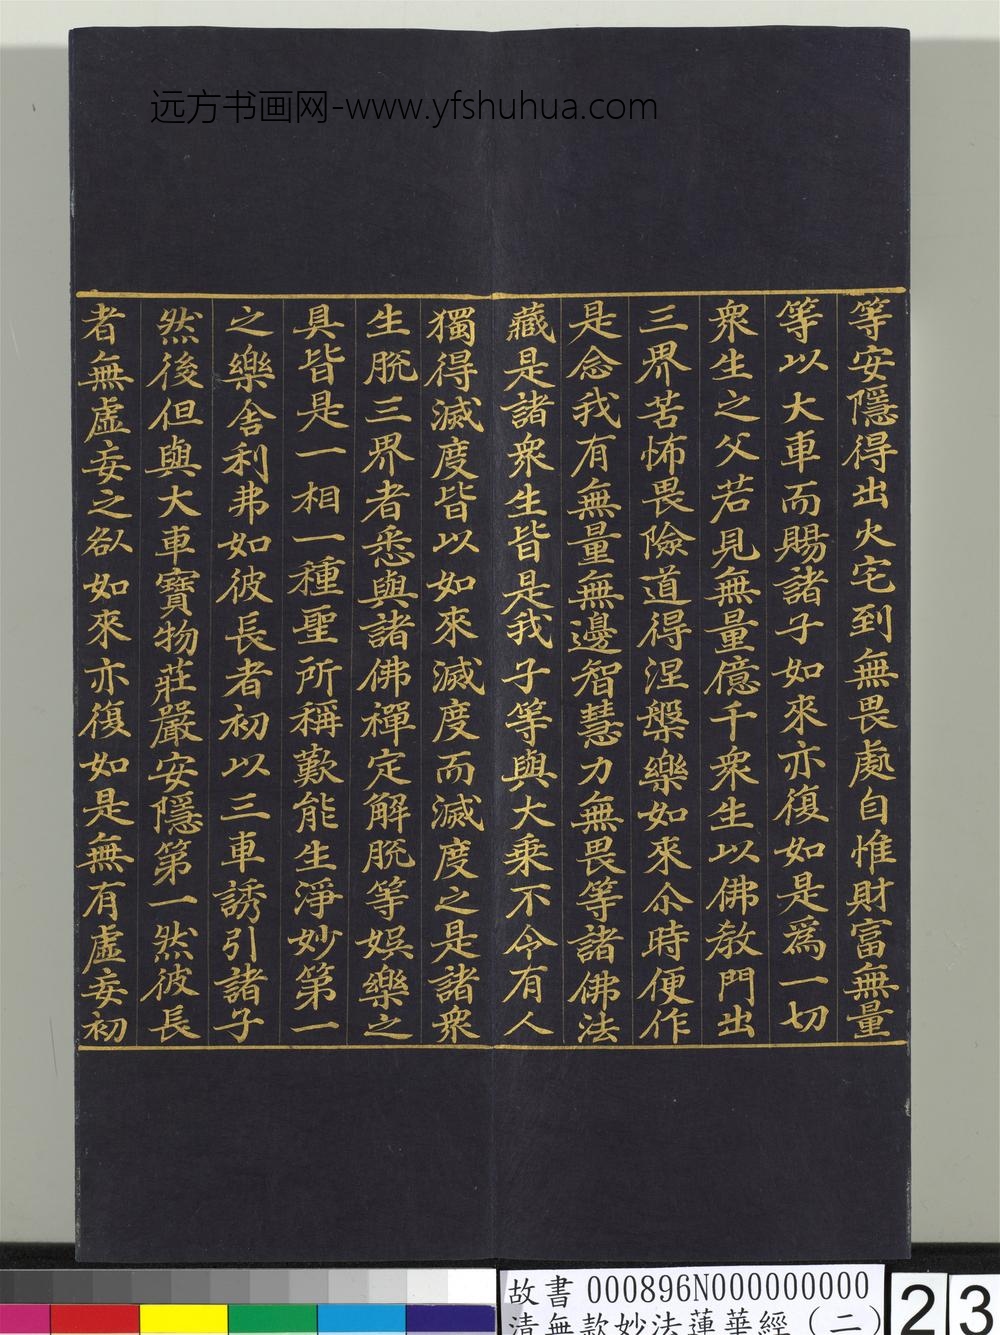 远方书画网-www.yfshuhua.com
等安隱得出火宅到無畏處自惟財富無量
等以大車而賜諸子如來亦復如是爲一切
衆生之父若見無量億千衆生以佛教門出
三界苦怖畏險道得涅槃樂如來尒時便作
是念我有無量無邊智慧力無畏等諸佛法
藏是諸衆生皆是我子等與大乘不令有人
獨得滅度皆以如來滅度而滅度之是諸衆
生脫三界者悉與諸佛禪定解脫等娛樂之
具皆是一相一種聖所稱歎能生淨妙第一
之樂舍利弗如彼長者初以三車誘引諸子
然後但與大車寶物莊嚴安隱第一然彼長
者無虛妄之咎如來亦復如是無有虛妄初
故書 000896N000000000
清無款妙法蓮華經（二）
23